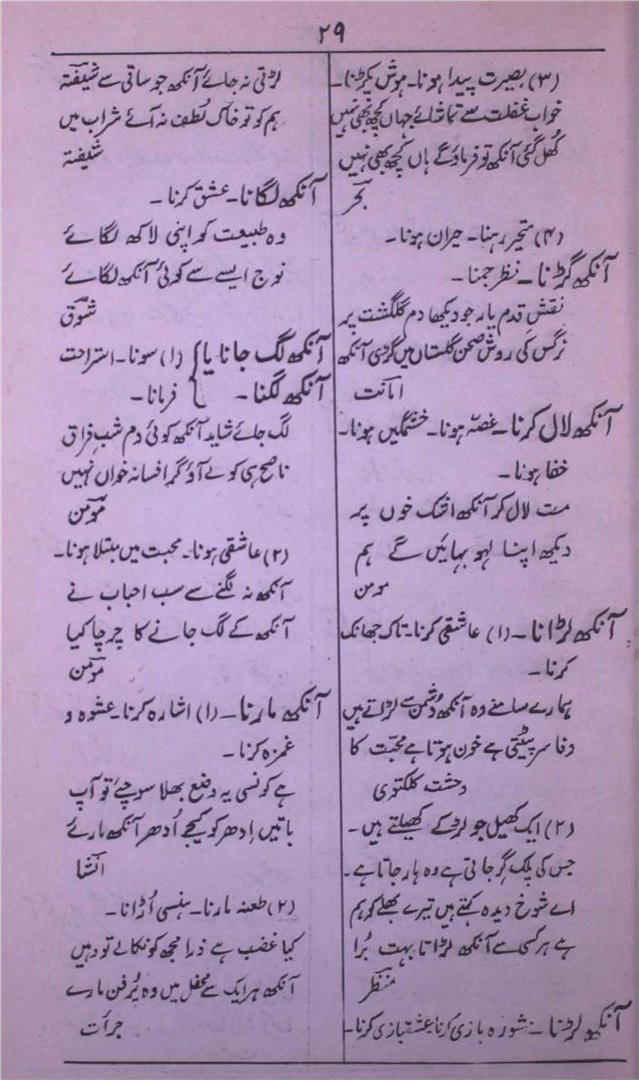 ۲۹
(۳) بصیرت پیدا ہونا۔ ہوش پکڑنا۔
خواب غفلت سے تماشائے جہاں کچھ بھی نہیں
کھل گئی آنکھ تو فرماؤگے ہاں کچھ بھی نہیں
بحر
(۴) متحیر رہنا۔ حیران ہونا۔
آنکھ گڑنا۔ نظر جمنا۔
نقش قدم یار جو دیکھا دم گلگشت پر
نرگس کی روش صحن گلستاں میں گڑی آنکھ
امانت
آنکھ لال کرنا۔ غصّہ ہونا۔ خشمگیں ہونا۔
خفا ہونا۔
مت لال کر آنکھ اشک خوں پر
دیکھ اپنا لہو بہائیں گے ہم
مومن
آنکھ لڑانا۔ (۱) عاشقی کرنا۔ تاک جھانک
کرنا۔
ہمارے سامنے وہ آنکھ دشمن سے لڑاتے ہیں
وفا سر پیٹتی ہے خون ہوتا ہے محبّت کا
وحشت کلکتوی
(۲) ایک کھیل جو لڑکے کھیلتے ہیں۔
جس کی پلک گر جاتی ہے وہ ہار جاتا ہے۔
اے شوخ دیدہ کہتے ہیں تیرے بھلے کو ہم
ہے ہر کسی سے آنکھ لڑاتا بہت بُرا
منتظر
آنکھ لڑنا۔ شورہ بازی کرنا عشقبازی کرنا۔
لڑتی نہ جائے آنکھ جو ساقی سے شیفتہ
ہم کو تو خاک لُطف نہ آئے شراب میں
شیفتہ
آنکھ لگانا۔ عشق کرنا۔
وہ طبیعت کو اپنی لاکھ لگائے
نوج ایسے سے کوئی آنکھ لگائے
شوق
آنکھ لگ جانا یا } (۱) سونا۔ استراحت
آنکھ لگنا۔ } فرمانا۔
لگ جائے شاید آنکھ کوئی دم شب فراق
ناصح ہی کو لے آؤ گر افسانہ خواں نہیں
مومن
(۲) عاشقی ہونا۔ محبت میں مبتلا ہونا۔
آنکھ نہ لگنے سے سب احباب نے
آنکھ کے لگ جانے کا چرچا کیا
مومن
آنکھ مارنا۔ (۱) اشارہ کرنا۔ عشوہ و
غمزہ کرنا۔
ہے کونسی یہ وضع بھلا سوچئے تو آپ
باتیں اِدھر کو کیجے اُدھر آنکھ مارئے
انشا
(۲) طعنہ مارنا۔ ہنسی اُڑانا۔
کیا غضب ہے ذرا مجھ کو نکالے تو وہیں
آنکھ ہر ایک سے محفل میں وہ پُرفن مارے
جرأت